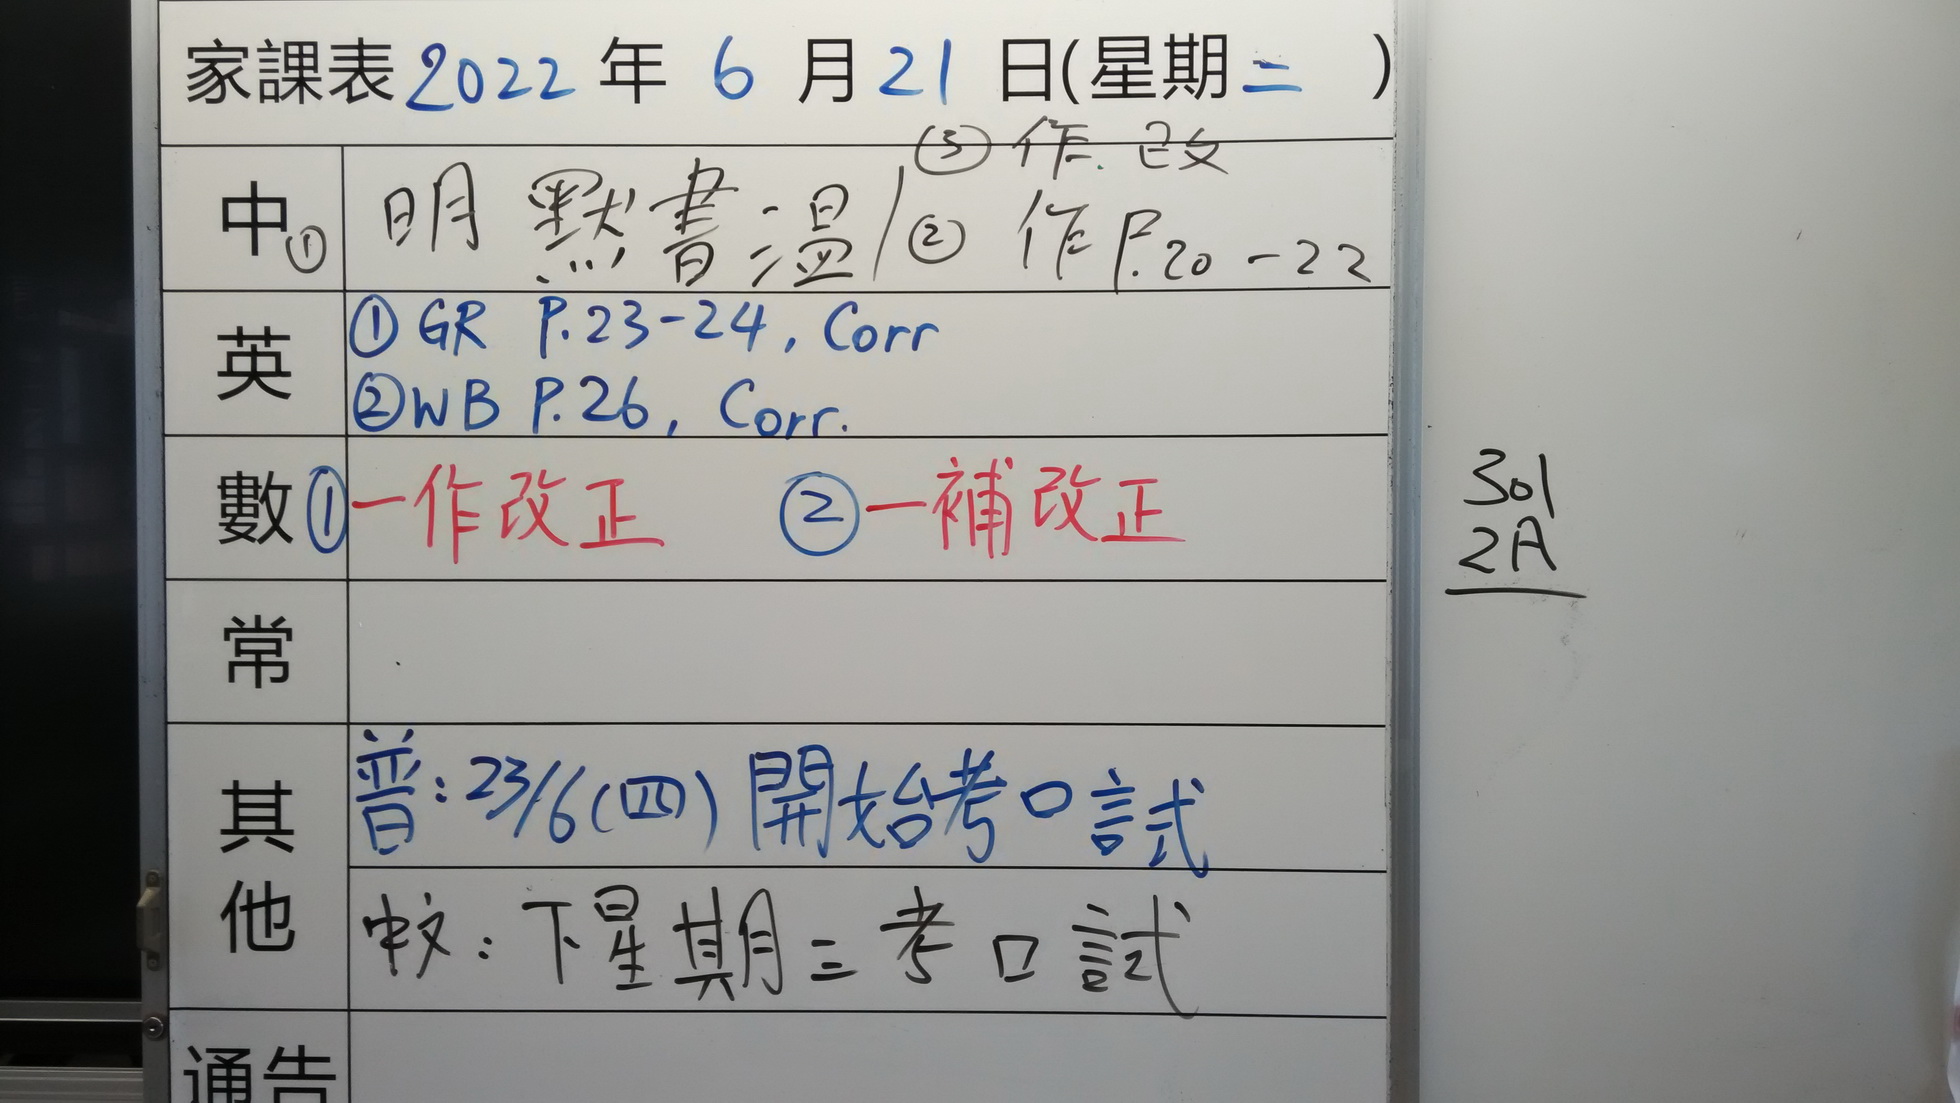 家課表 2022 年 6 月 21 日(星期二 )
③ 作.改
中 ① 明 默書溫 / ② 作 P.20-22
英 ① GR P.23-24, Corr
② WB P.26, Corr.
數 ① 一作改正 ② 一補改正
常
其他
普:23/6(四)開始考口試
中文:下星期二考口試
通告
301
2A